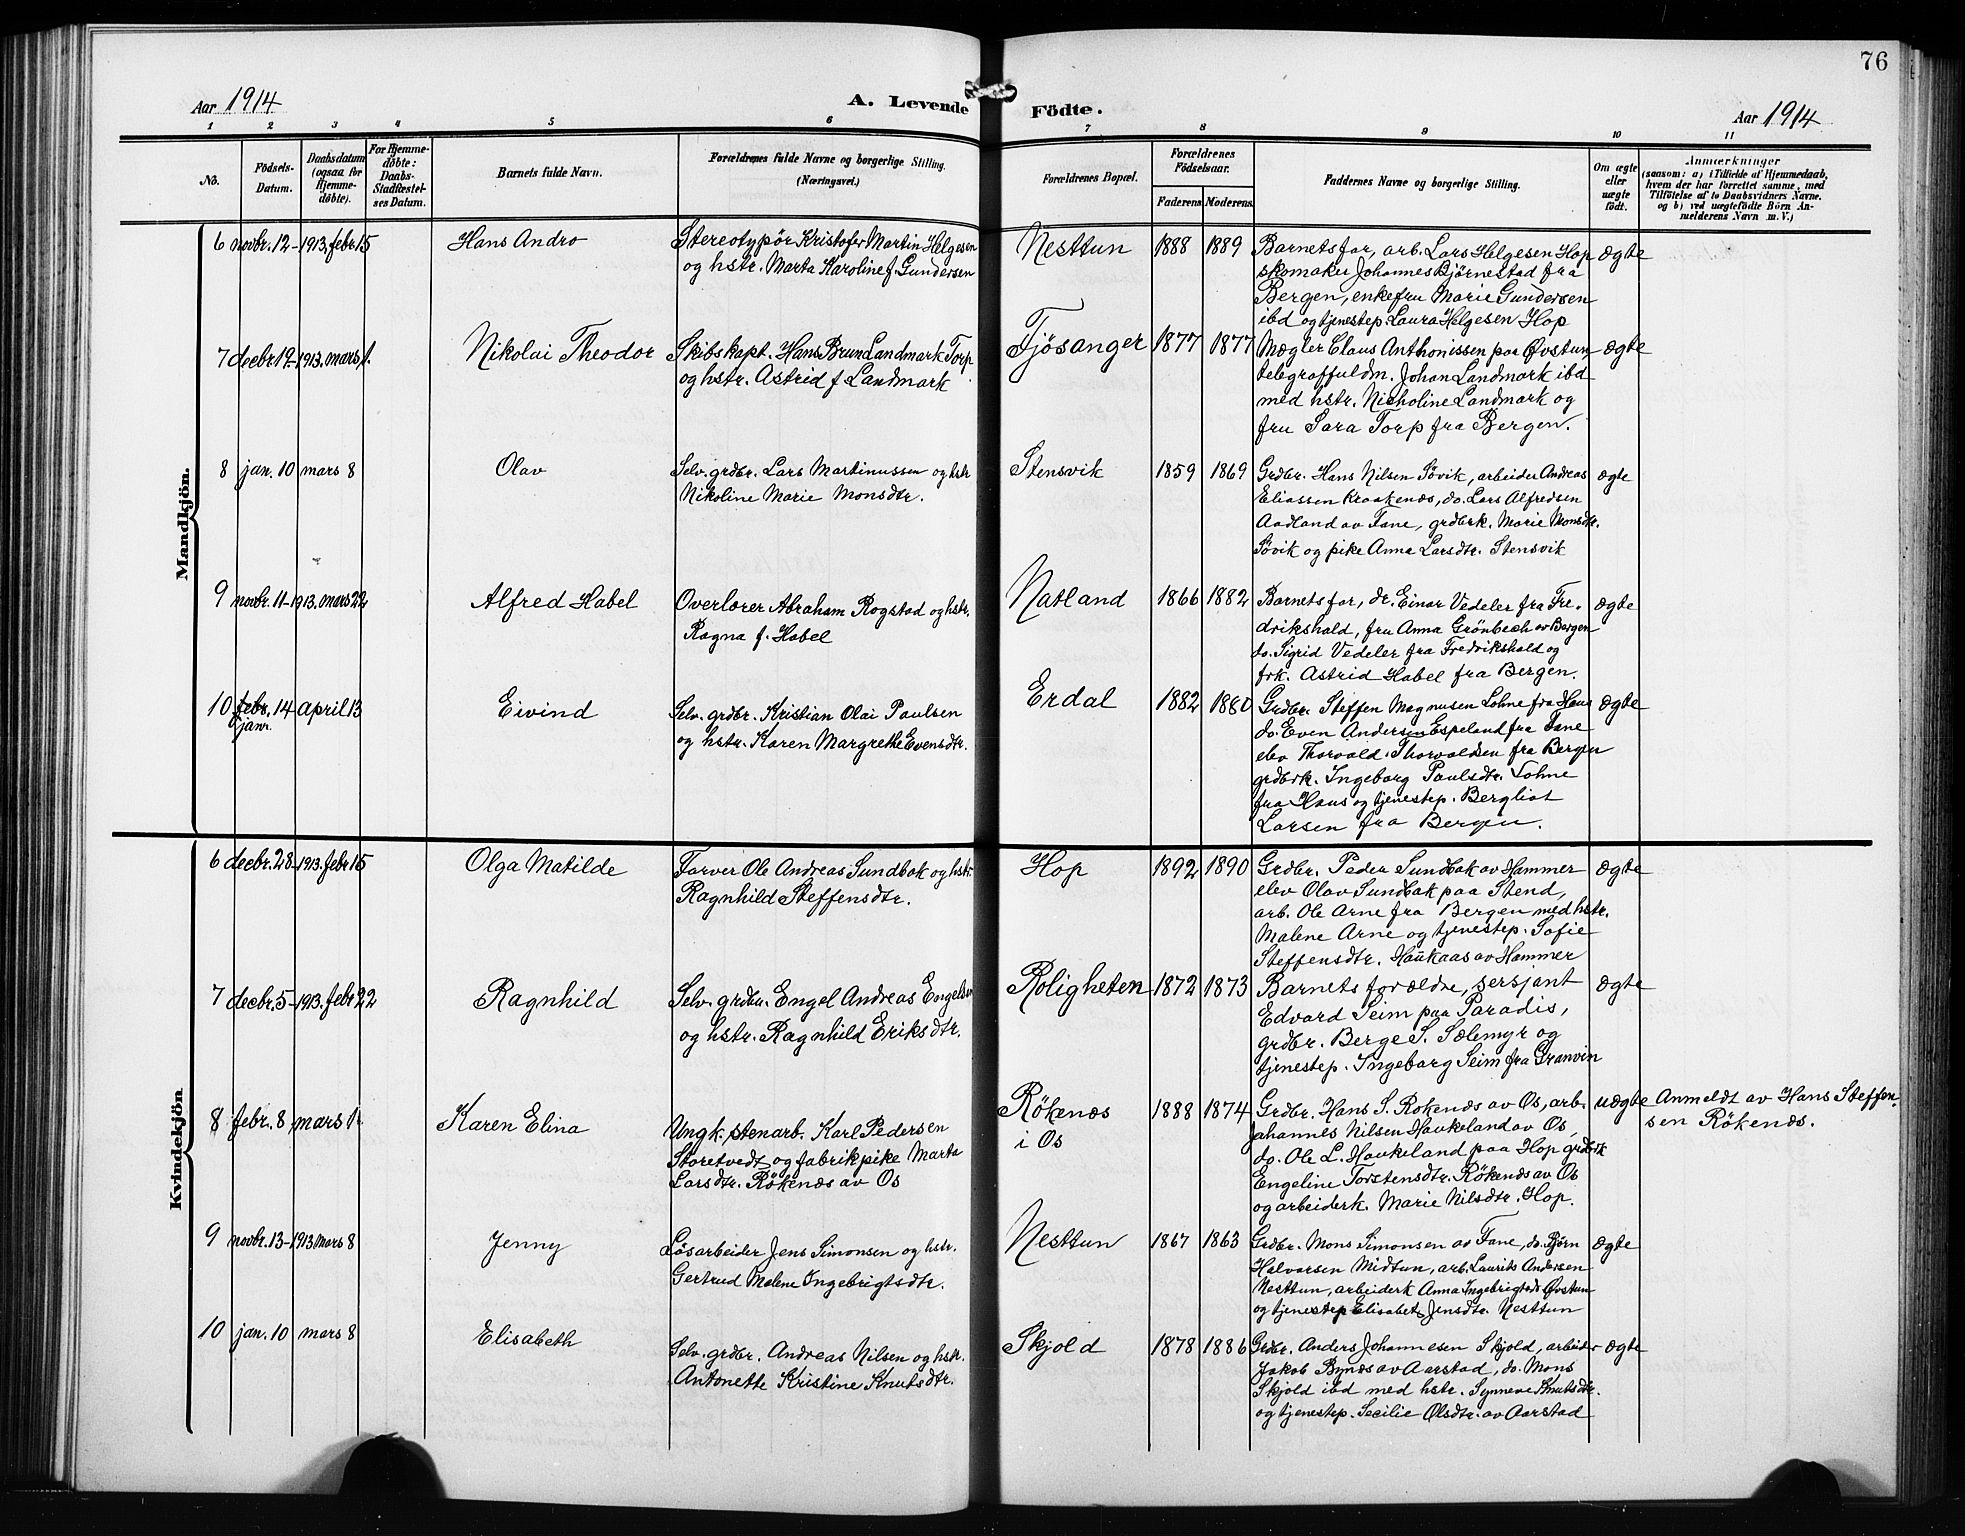 76
Aar 1914
A. Levende
Födte.
Aar 1914
1 2 3 4 5 6 7 8 9 10 11
No.
Födsels-
Datum.
Daabsdatum
(ogsaa for
Hjemme-
døbte).
For Hjemme-
døbte:
Daabs-
Stadfæstel-
ses Datum.
Barnets fulde Navn.
Forældrenes fulde Navne og borgerlige Stilling.
(Næringsvei.)
Forældrenes Bopæl.
Forældrenes
Födselsaar.
Faderens
Moderens
Faddernes Navne og borgerlige Stilling.
Om ægte
eller
uægte
födt.
Anmærkninger
(saasom: a) i Tilfælde af Hjemmedaab,
hvem der har forrettet samme, med
Tilföielse af to Daabsvidners Navne.
og b) ved uægtefödte Börn An-
melderens Navn m. V.)
Mandkjön.
6 novbr. 12-1913. febr. 15 Hans Andro
Stereotypör Kristofer Martin Helgesen
og hstr. Marta Karoline f. Gundersen
Nesttun 1888 1889
Barnets far, arb. Lars Helgesen Hop
skomaker Johannes Bjørnestad fra
Bergen, enkefru Marie Gundersen
ibd og tjenestep. Laura Helgesen Hop
ægte
7 decbr. 12-1913. mars 1. Nikolai Theodor
Skibskapt. Hans Brun Landmark Torp
og hstr. Astrid f Landmark
Fjösanger 1877 1877
Mægler Claus Anthonissen paa Øvstun
telegraffuldm. Johan Landmark ibd
med hstr. Nicholine Landmark og
fru Sara Torp fra Bergen.
ægte
8 jan. 10 mars 8 Olav
Selv. grdbr. Lars Martinussen og hstr
Nikoline Marie Monsdtr.
Stensvik 1859 1869
Grdbr. Hans Nilsen Søvik, arbeider Andreas
Eliassen Kraakenes, do. Lars Alfredsen
Aadland av Fane, grdbrk. Marie Monsdtr.
Søvik og pike Anna Larsdtr. Stensvik
ægte
9 novbr. 11-1913. mars 22 Alfred Habel
Overlærer Abraham Rogstad og hstr.
Ragna f. Habel
Natland 1866 1882
Barnets far, dr. Einar Vedeler fra Fre-
drikshald, fru Anna Grønbech av Bergen
do. Sigrid Vedeler fra Fredrikshald og
frk. Astrid Habel fra Bergen.
ægte
10 febr. 14 april 13 Eivind
janr.
Selv. grdbr. Kristian Olai Paulsen
og hstr. Karen Margrethe Evensdtr.
Erdal 1882 1880
Grdbr. Steffen Magnusen Lohne fra Haus
do. Even Andersen Espeland fra Fane
elev Thorvald Thorvaldsen fra Bergen
grdbrk. Ingeborg Paulsdtr. Lohne
fra Haus og tjenestep. Bergliot
Larsen fra Bergen.
ægte
Kvindekjön
6 decbr. 28-1913. febr. 15 Olga Matilde
Farver Ole Andreas Sundbak og hstr
Ragnhild Steffensdtr.
Hop 1892 1890
Grdbr. Peder Sundbak av Hammer
elev Olav Sundbak paa Stend,
arb. Ole Arne fra Bergen med hstr.
Malene Arne og tjenestep. Sofie
Steffensdtr. Haukaas av Hammer
ægte
7 decbr. 5-1913. febr. 22 Ragnhild
Selv. grdbr. Engel Andreas Engelsen
og hstr. Ragnhild Eriksdtr.
Roligheten 1872 1873
Barnets forældre, sersjant
Edvard Seim paa Paradis,
grdbr. Berge S. Sælemyr og
tjenestep. Ingeborg Seim fra Granvin
ægte
8 febr. 8 mars 1. Karen Elina
Ungk. stenarb. Karl Pedersen
Storetvedt og fabrikpike Marta
Larsdtr. Rökenæs av Os
Rökenæs
i Os
1888 1874
Grdbr. Hans S. Rokenæs av Os, arb.
Johannes Nilsen Haukeland av Os,
do. Ole L. Haukeland paa Hop grdbrk
Engeline Torstensdtr. Rökenæs av Os
og arbeiderk. Marie Nilsdtr. Hop.
uægte
Anmeldt av Hans Steffen-
sen Rökenæs.
9 novbr. 13-1913 mars 8 Jenny
Løsarbeider Jens Simonsen og hstr.
Gertrud Malene Ingebrigtsdtr.
Nesttun 1867 1863
Grdbr. Mons Simonsen av Fane, do. Bjørn
Halvorsen Midtun, arb. Laurits Andersen
Nesttun, arbeiderk Anna Ingebrigtsdt. Øvstun
og tjenestep Elisabet Jensdtr. Nesttun
ægte
10 jan. 10 mars 8 Elisabeth
Selv. grdbr. Andreas Nilsen og hstr.
Antonette Kristine Knutsdtr.
Skjold 1878 1886
Grdbr. Anders Johannesen Skjold, arbeider
Jakob Bynæs av Aarstad, do. Mons
Skjold ibd med hstr. Synneve Knutsdtr.
og tjenestep. Secilie Olsdtr. av Aarstad
ægte